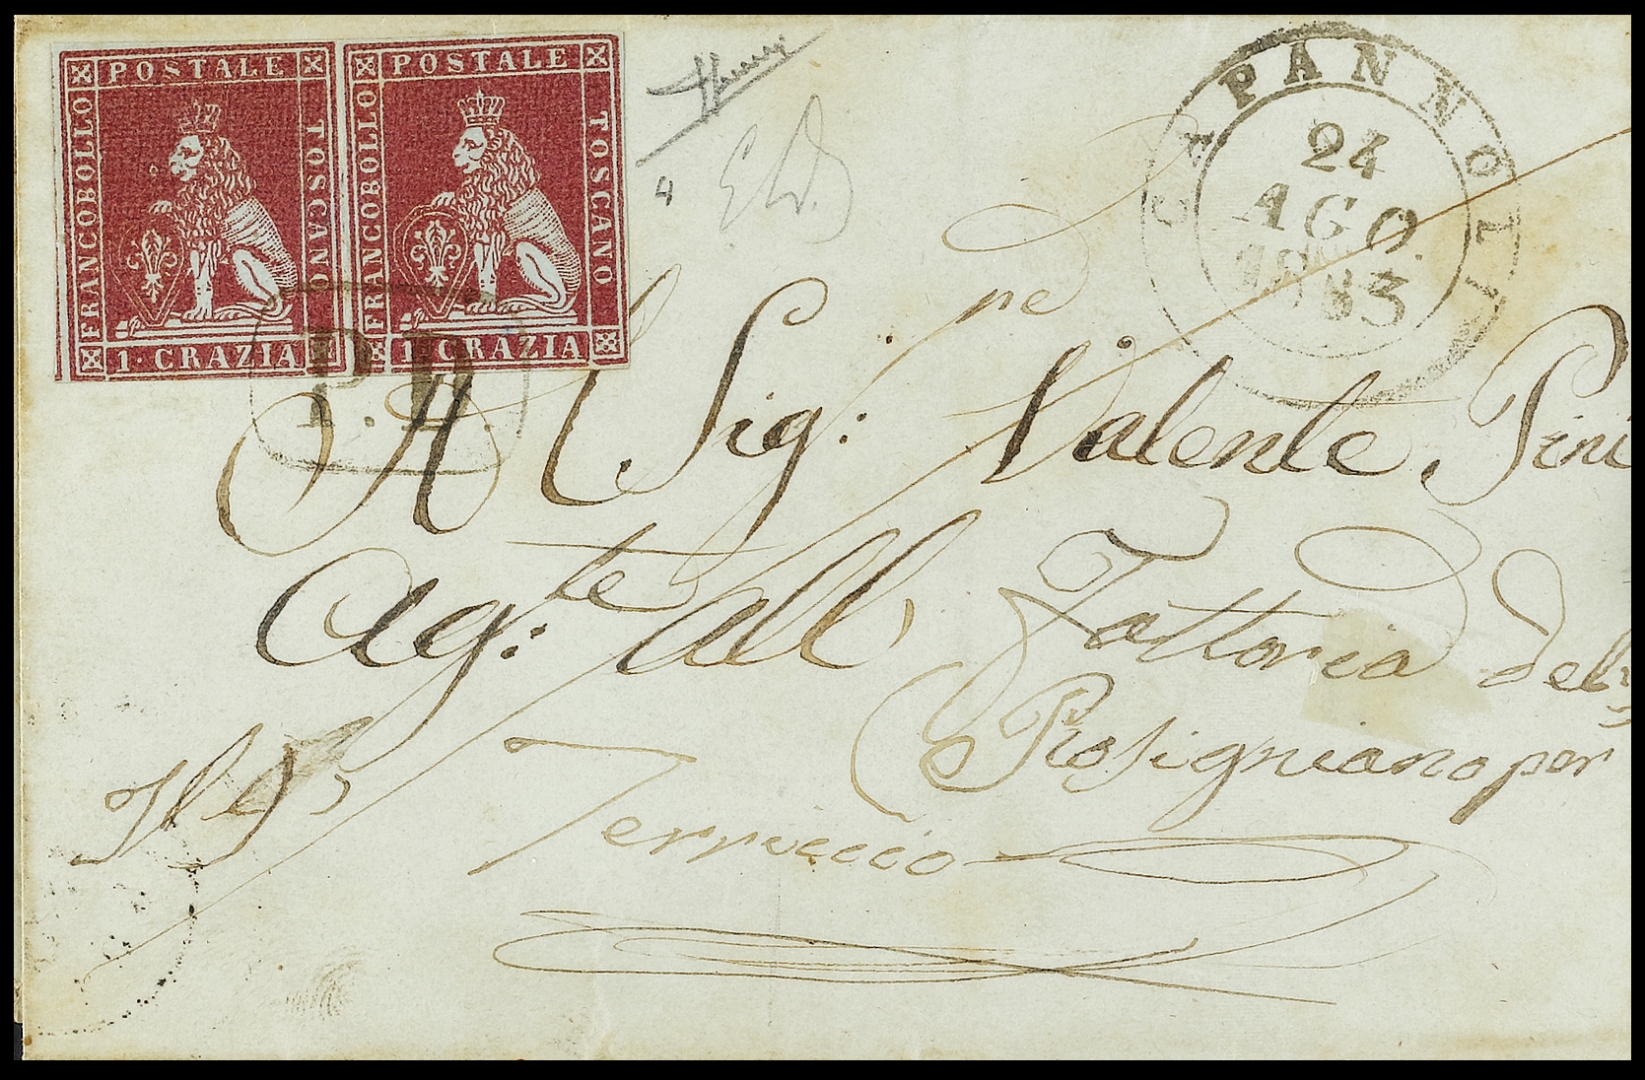 POSTALE
FRANCOBOLLO
TOSCANO
1·CRAZIA
POSTALE
FRANCOBOLLO
TOSCANO
1·CRAZIA
P. D.
4
CAPANNOLI
24
AGO.
Al Sig: Valente Pini
Ag:te all Fattoria del
Rosignano per
Terruccio